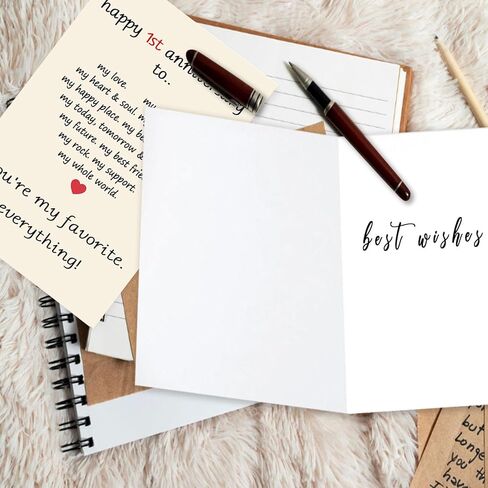 happy 1st anniversary
to..
my love.
my heart & soul. my
my happy place. my be
my today, tomorrow &
my future. my best frie
my rock. my support.
my whole world.
you're my favorite.
everything!
best wishes
but
Longe
you th
have